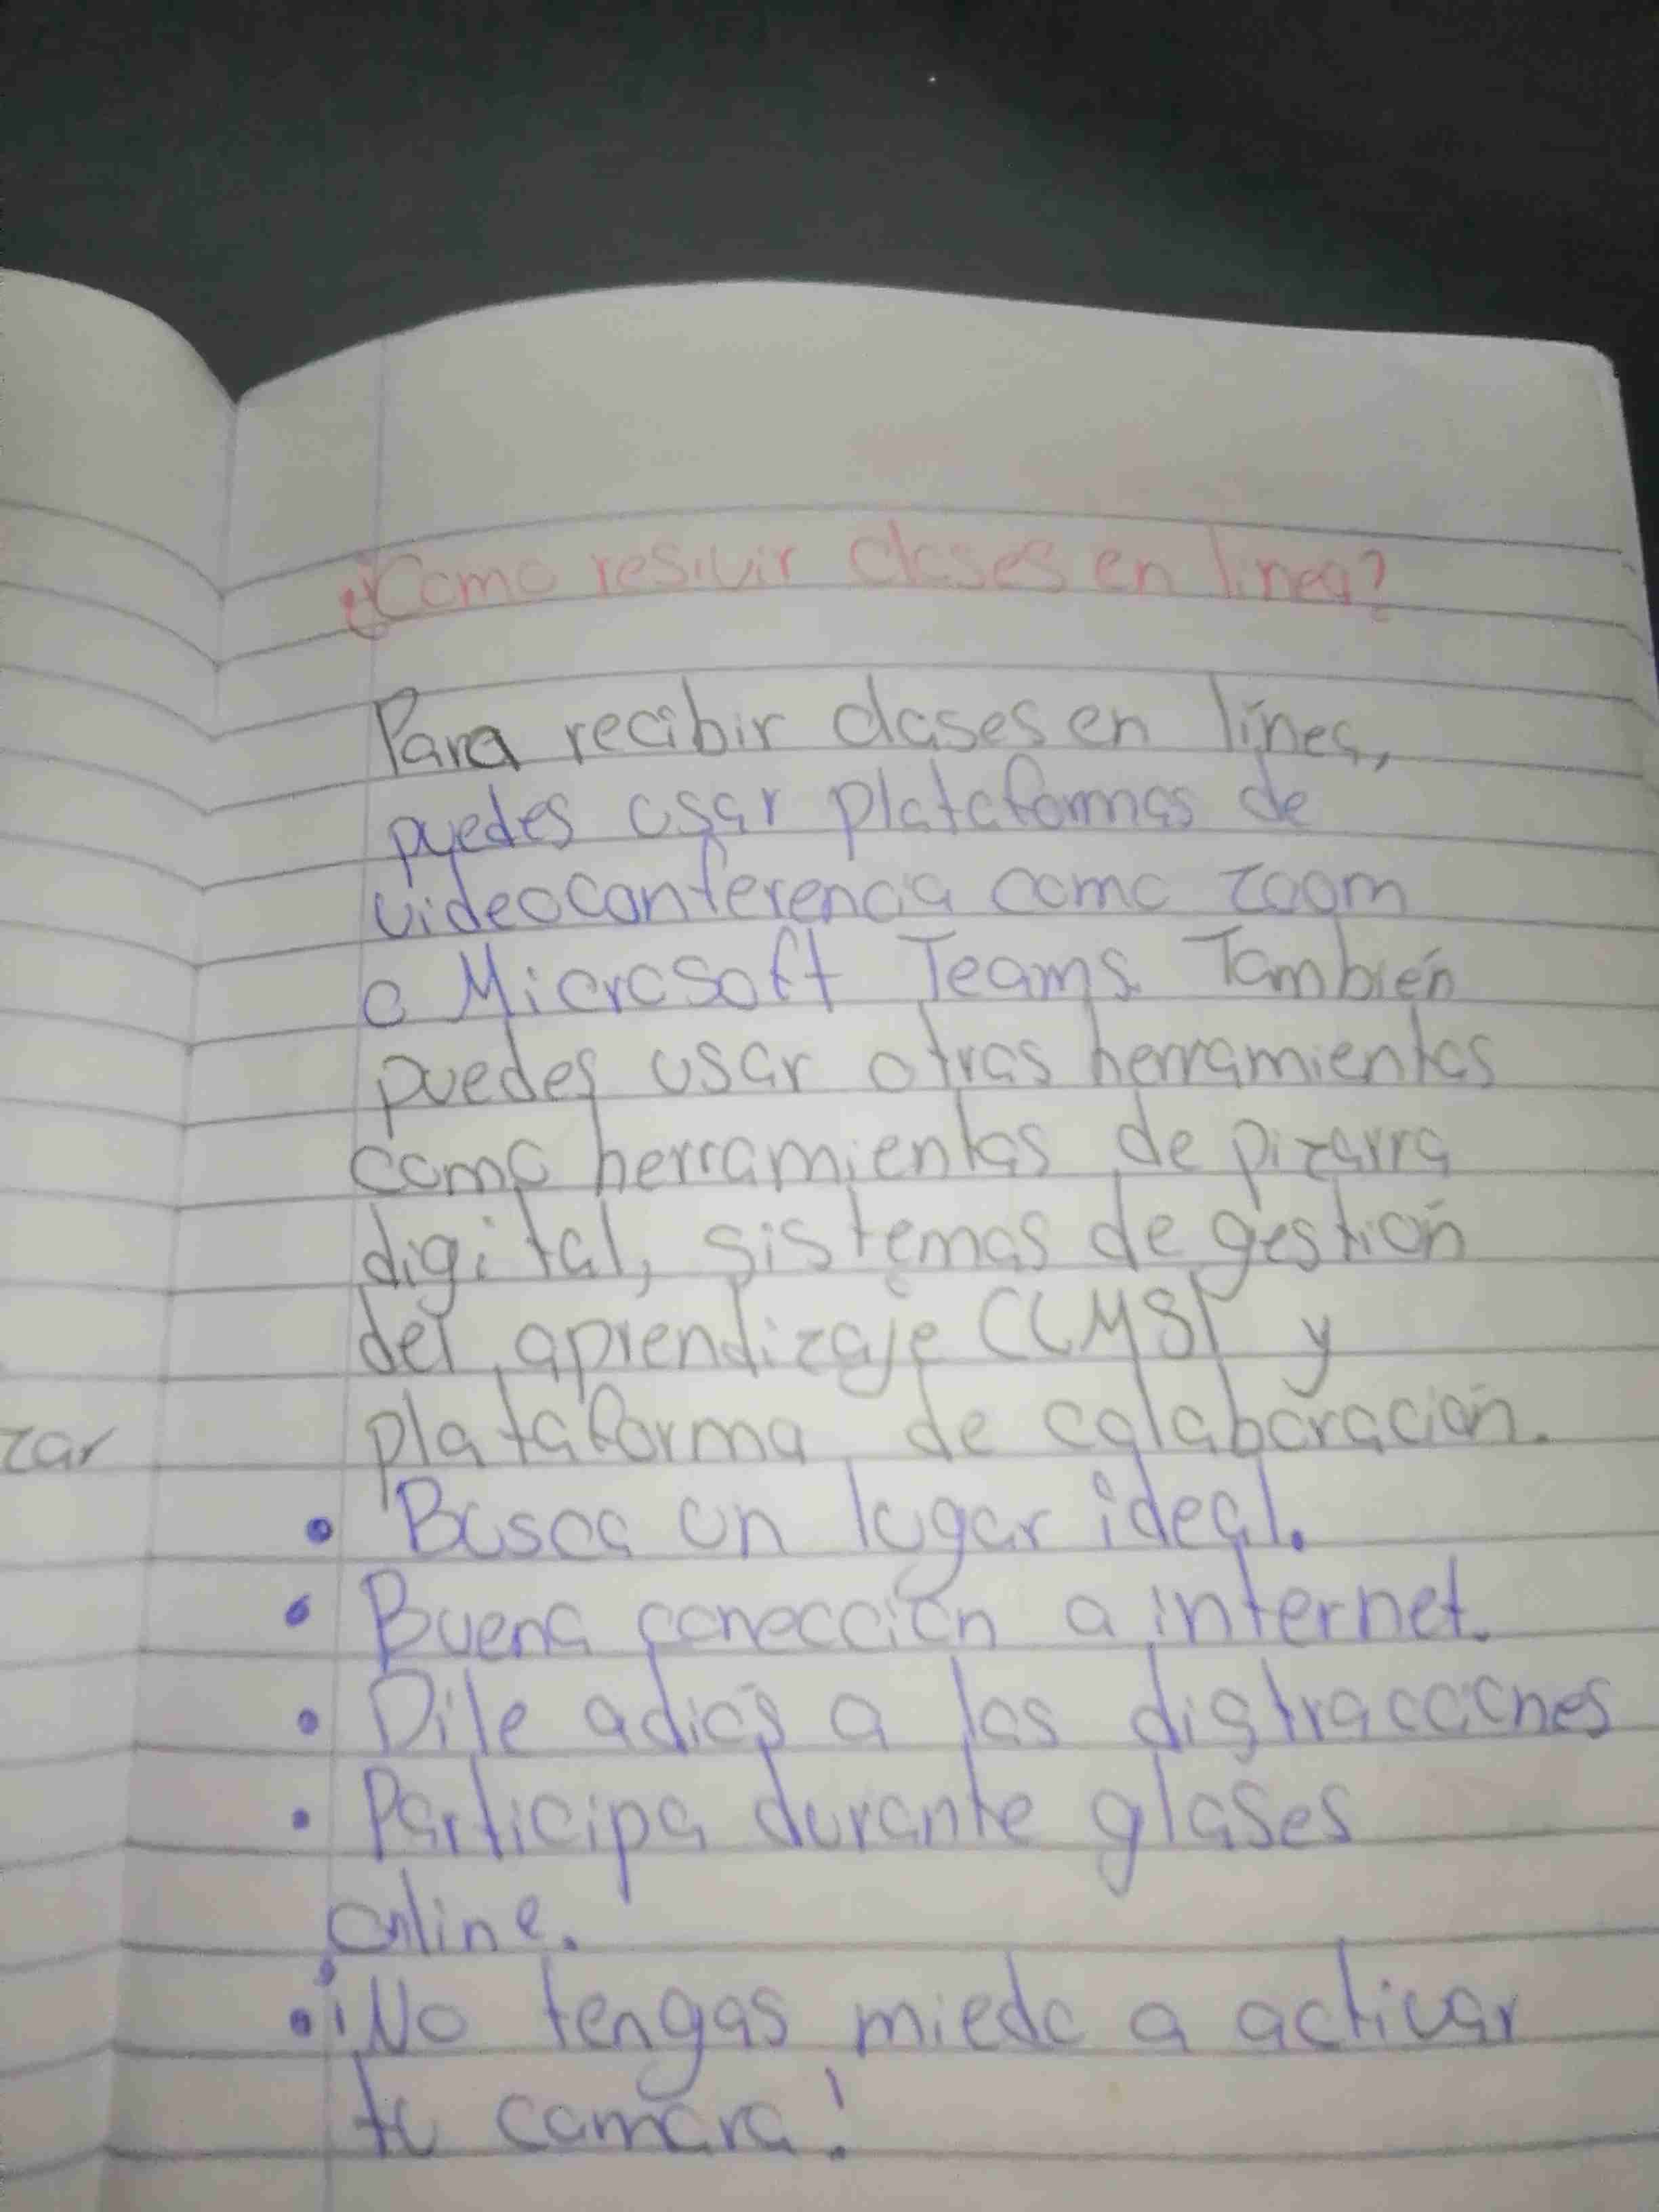 ¿Como resivir clases en linea?
Para recibir clases en línea,
puedes usar plataformas de
videoconferencia como zoom
o Microsoft Teams. También
puedes usar otras herramientas
como herramientas de pizarra
digital, sistemas de gestión
del aprendizaje (LMS) y
zar
plataforma de colaboración.
• Busca un lugar ideal.
• Buena conección a internet.
• Dile adiós a las distracciones
• Participa durante glases
online.
• ¡No tengas miedo a activar
tu camára!